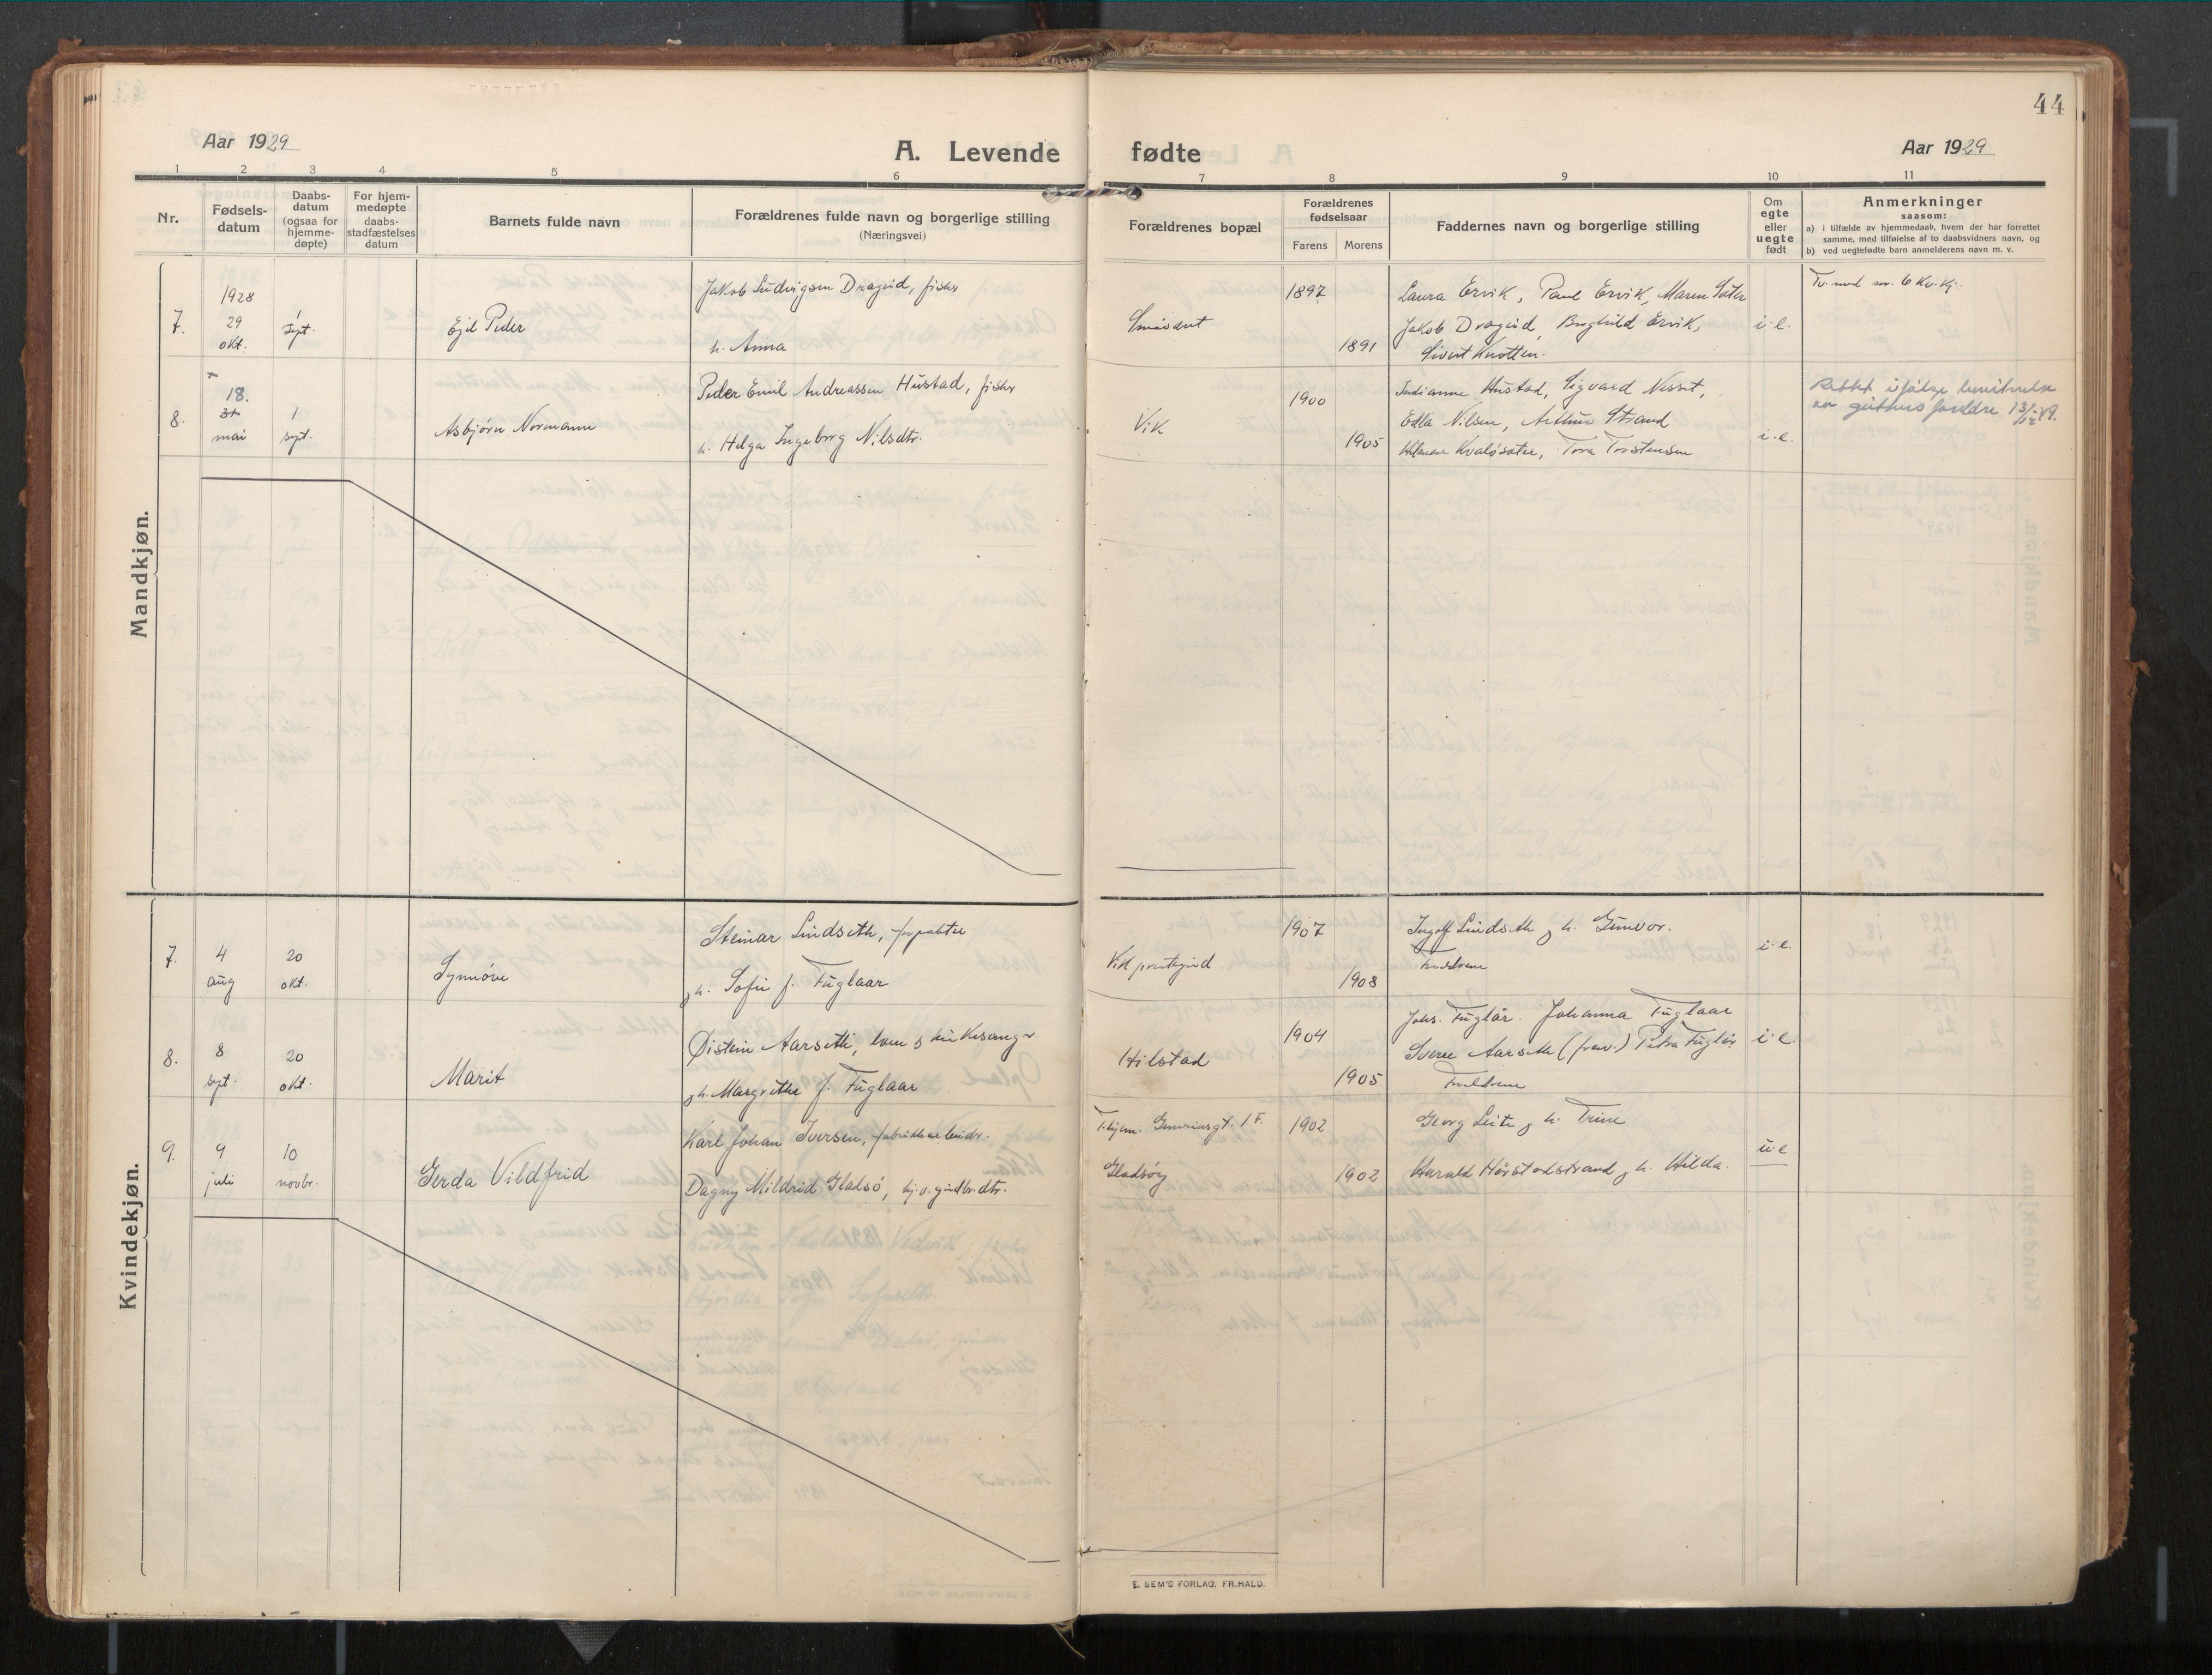 44
Aar 1929
A. Levende fødte
Aar 1929
1 2 3 4 5 6 7 8 9 10 11
Nr.
Fødsels-
datum
Daabs-
datum
(ogsaa for
hjemme-
døpte)
For hjem-
medøpte
daabs-
stadfæstelses
datum
Barnets fulde navn
Forældrenes fulde navn og borgerlige stilling
(Næringsvei)
Forældrenes bopæl
Forældrenes
fødselsaar
Farens Morens
Faddernes navn og borgerlige stilling
Om
egte
eller
uegte
født
Anmerkninger
saasom:
a) i tilfælde av hjemmedaab, hvem der har forrettet
samme, med tilføielse af to daabsvidners navn, og
b) ved uegtefødte barn anmelderens navn m. v.
Mandkjøn.
7.
1928
29
okt.
1
sept.
Ejd Peder
Jakob Ludvigsen Drageid, fisker
h. Anna
1897
1891
Laura Ervik, Paul Ervik, Maren Sæter
Jakob Drageid, Borghild Ervik,
Sivert Knotten.
i.e.
Tv. med nr. 6 Kv.kj.
8.
+
18.
31
mai
1
sept.
Asbjørn Normann
Peder Emil Andreassen Hustad, fisker
h. Helga Ingeborg Nilsdtr.
Vik
1900
1905
Indianne Hustad, Sigvard Nesset,
Edla Nilsen, Arthur Strand
Kvaløsæter, Tora Torstensen
i.e.
Rettet ifølge
av foreldre 13/12 49.
Kvindekjøn.
7.
4
aug
20
okt.
Synnøve
Steinar Lindseth, forpakter
g h. Sofie f. Fuglaar
Vik prestegård
1907
1908
Ingolf Lindseth g h. Gunvor.
Foreldrene
i.e.
8.
8
sept.
20
okt.
Marit
Øistein Aarseth, lærer
g h. Margrethe f. Fuglaar
Hilstad
1904
1905
Johs. Fuglår. Johanna Fuglaar
Sverre Aarseth (frav.) Petra Fuglår
Foreldrene
i.e.
9.
9
juli
10
novbr.
Gerda Vildfrid
Karl Johan Iversen, fabrikkarbeider.
Dagny Mildrid Gladsø, hj.v. gårdbr.dtr.
Gladsøy
1902
1902
Georg Leite g h. Trine
Harald Hårstadstrand g h. Hilda.
u.e
E. SEM'S FORLAG, FR.HALD.